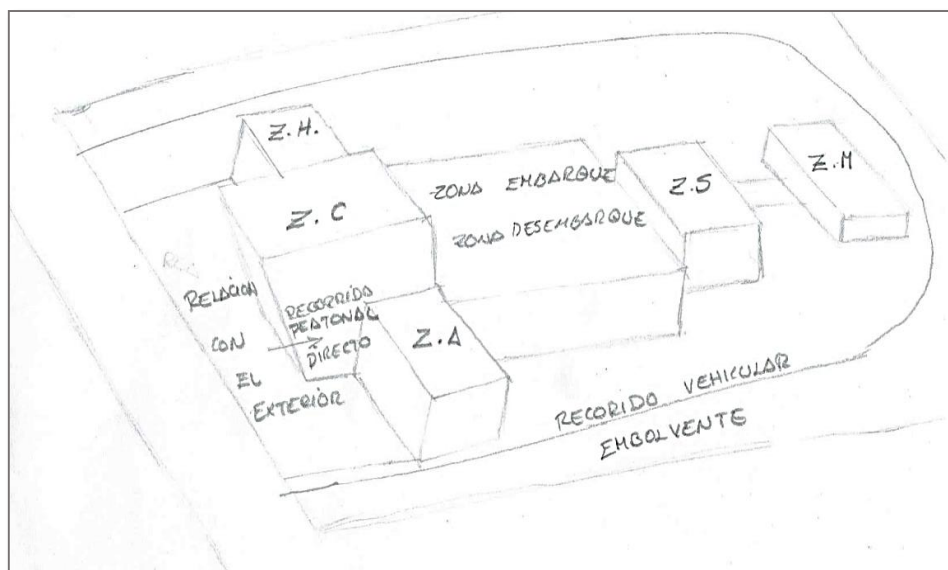 Z.H.
Z.C
ZONA EMBARQUE
ZONA DESEMBARQUE
Z.S
Z.M
RELACION
CON
EL
EXTERIOR
RECORRIDO
PEATONAL
DIRECTO
Z.A
RECORIDO VEHICULAR
EMBOLVENTE